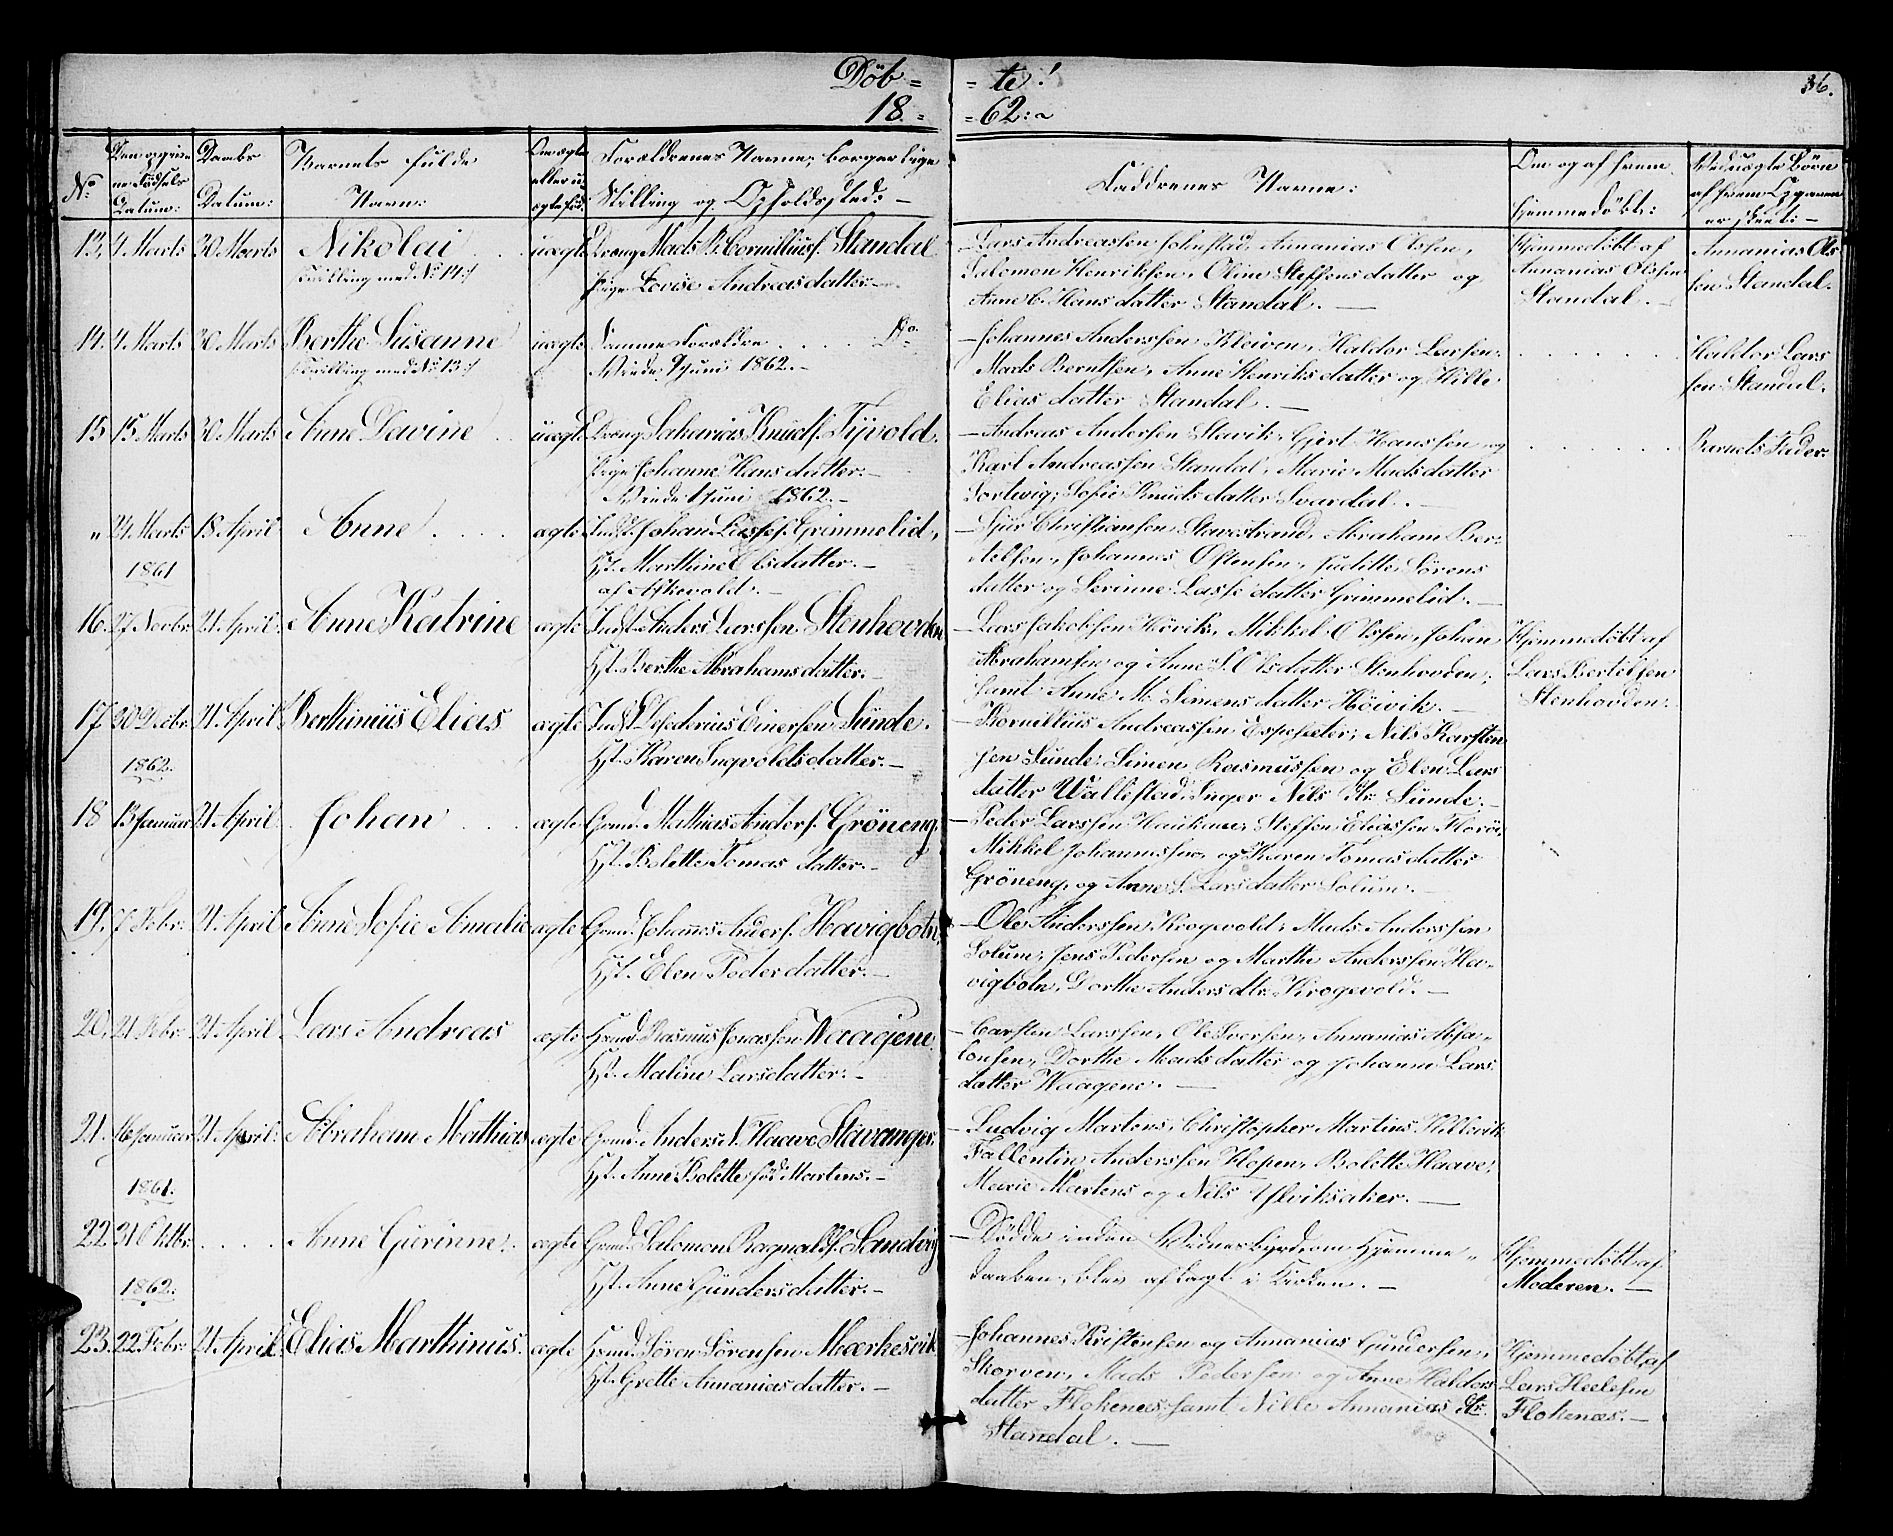 Døb= =te!
36.
18.= =62:~
No
Den opgivne Fødsels Datum:
Daabs Datum:
Barnets fulde Navn:
Om ægte eller uægte fød:
Forældrenes Navne, borgerlige Stilling og Opholdssted:-
Faddrenes Navne:
Om og af hvem hjemmedøbt:
Ved uægte Børn af hvem Opgaven er skeet:-
13, 4 Marts 30 Marts Nikolai uægte Dreng Mads B. Cornilliusf. Standal
Tvilling med No 14:/ Pige Lovise Andreasdatter.-
Lars Andreassen Annanias Olssen,
Salomon Henriksen, Oline Steffensdatter og
Anne C. Hansdatter Standal.-
Hjemmedøbt af
Annanias Olssen
Standal.-
Annanias Ols
sen Standal.
14. 4 Marts 30 Marts Berthe Susanne uægte Samme Forældre . . . . Do
Tvilling med No 13:/ 9 Juni 1862.-
Johannes Anderssen Kleiven, Haldor Larsen,
Mads Berntsen, Anne Henriksdatter og Nille
Elias datter Standal.-
Haldor Lars
sen Standal.
15 15 Marts 30 Marts Anne Davine uægte Dreng Sakarias Knudf. Tyvold.
Pige Johanne Hansdatter.-
Juni 1862.-
Andreas Andersen Stavik, Gjert Hanssen og
Karl Andreassen Standal, Marie Madsdatter
Sortevig, Sofie Knudsdatter Svardal.-
Barnets Fader.
" 24 Marts 18 April Anne . . . . ægte Indst. Johan Lassef. Grimmelid,
1861 Hst. Marthine Olsdatter.-
af Askevold.-
Sjur Christiansen Stavestrand, Abraham Ber-
telsen, Johannes Østensen, Juditte Sörens
datter og Serinne Lasse datter Grimmelid.-
16. 27 Novbr. 21 April. Anne Katrine ægte Indst. Anders Larssen Stenhovden
Hst. Berthe Abrahamsdatter.-
Lars Jakobsen Høivik, Mikkel Olssen, Johan
Abrahamsen og Anne S. Olsdatter Stenhovden,
samt Anne M. Simensdatter Höivik.-
Hjemmedøbt af
Lars Bertelsen
Stenhovden.
17 30 Decbr. 21 April Berthinius Elias ægte Indst. Desiderius Einersen Sunde.
1862. Hst. Karen Ingvoldsdatter.-
Kornillius Andreassen Espeseter, Nils Karsten
sen Sunde, Simen Rasmussen og Elen Lars
datter Wallestad, Inger Nils Dtr. Sunde.-
18 13 Januar 21 April Johan . . . ægte Gmd. Mathias Andersf. Gröneng.
Hst. Bolette Tomasdatter.-
Peder Larssen Haukaae, Steffen Eliassen Florö,
Mikkel Johannessen, og Karen Tomasdatter
Gröneng, og Anne S. Larsdatter Solum.-
19. 7 Febr. 21 April Anne Sofie Amalie ægte Gmd. Johannes Andersf. Havigbotn,
Hst. Elen Pederdatter.-
Ole Anderssen Krogevold, Mads Anderssen
Solum, Jens Pedersen og Marthe Anderssen Ha-
vigbotn, Dorthe Andersdtr. Krogevold.-
20. 21 Febr. 21 April Lars Andreas ægte Gmd. Rasmus Jonassen Waagene.
Hst. Maline Larsdatter.-
Carsten Larssen, Ole Iversen, Annanias Absa-
lonsen, Dorthe Madsdatter og Johanne Lars
datter Waagene.-
21. 16 Januar 21 April. Abraham Mathias ægte Gmd. Anders N. Haave Stavanger.
1861. Hst. Anne Bolette fød Martens.-
Ludvig Martens, Christopher Martins Hillevik
Fallentin Anderssen Hopen, Bolette Haave,
Marie Martens og Nils Ytviksaker.-
22. 21 Oktbr. . . . . Anne Gurinne. ægte Gmd. Salomon Ragnaldf. Sandvig
1862. Hst. Anne Gundersdatter.-
Dödde inden Vidnesbyrd om Hjemme-
daaben, blev aflagt i Kirken.-
Hjemmedøbt af
Moderen.-
23. 22 Febr. 21 April. Elias Marthinus. ægte Gmd. Sören Sörensen Mærkesvik
Hst. Grette Annaniasdatter.-
Johannes Kristensen og Annanias Gundersen,
Skorven, Mads Pedersen og Anne Haldors
datter Flokenæs, samt Nille Annanias dtr.
Standal.-
Hjemmedøbt af
Lars Heelesen
Flokenæs.-